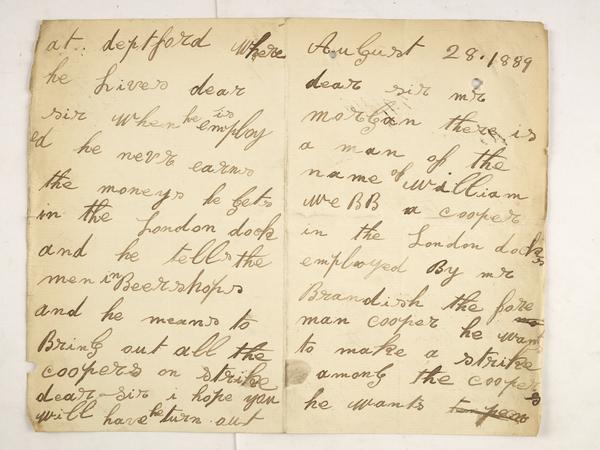 August 28.1889
dear sir mr
morgan there is
a man of the
name of william
weBB a cooper
in the London docks
employed By mr
Brandish the fore
man cooper he wants
to make a strike
among the coopers
he wants
at deptford where
he Lives dear
sir when he is employ
ed he nevr earns
the moneys he Gets
in the London dock
and he tells the
men in Beershops
and he means to
BrinG out all the
coopers on strike
dear-sir i hope you
will have he turn out